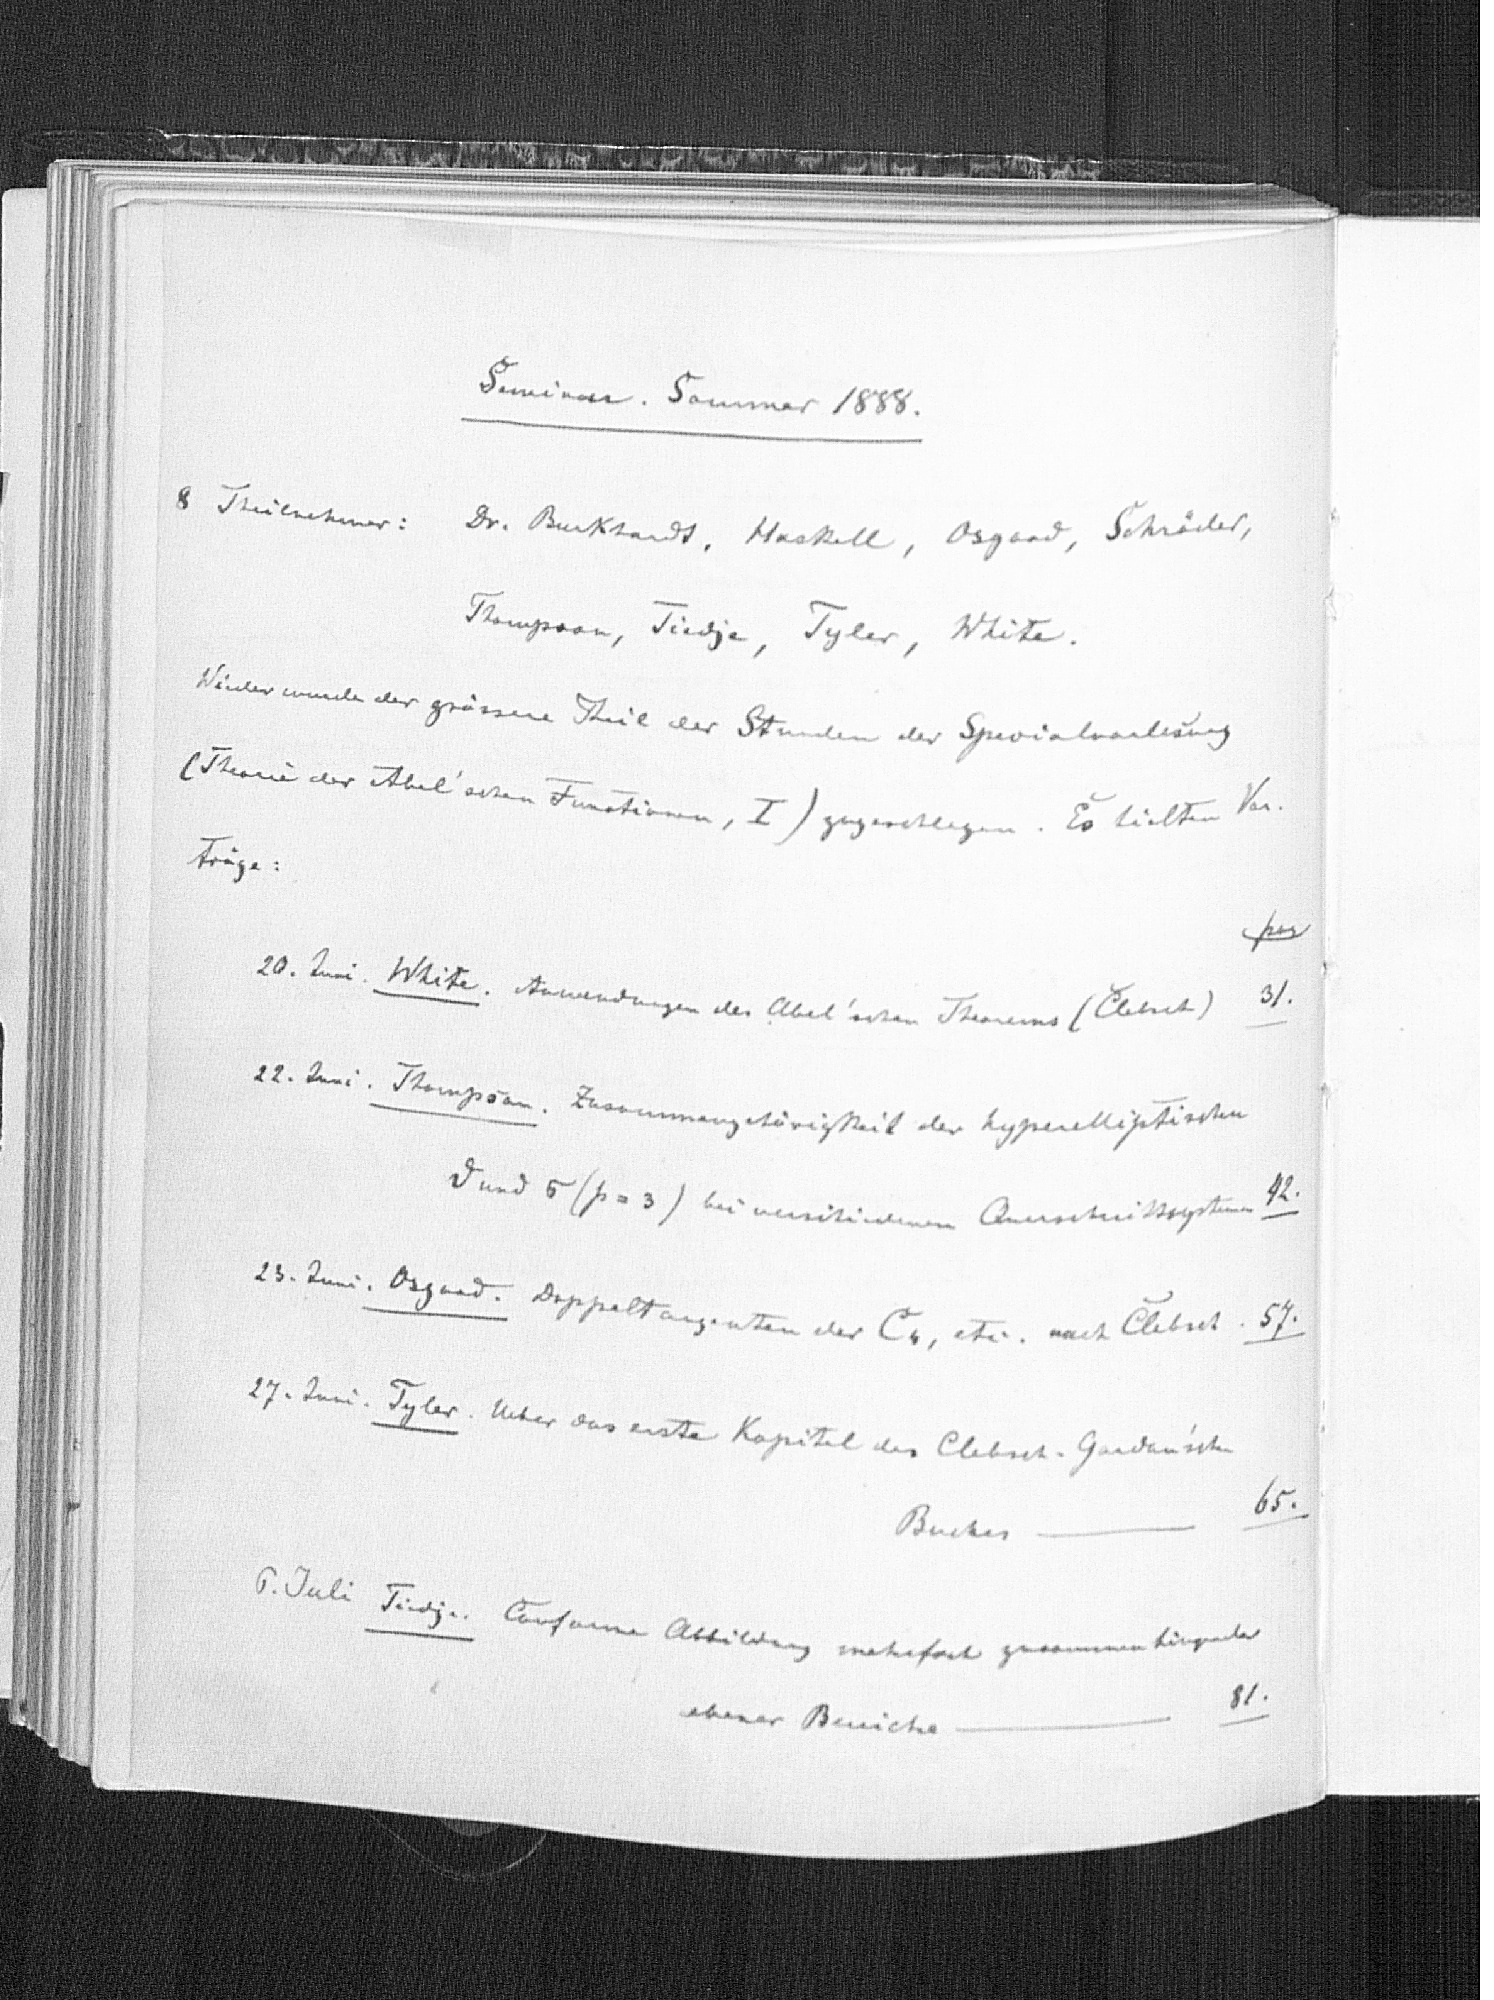 Seminar. Sommer 1888.
8 Theilnehmer: Dr. Burkhardt, Haskell, Osgood, Schröder,
Thompson, Tiedje, Tyler, White.
Wieder wurde der grössere Theil der Stunden der Specialvorlesung
(Theorie der Abel'schen Functionen, I) zugeschlagen. Es hielten Vor-
träge:
pag
20. Juni. White. Anwendungen des Abel'schen Theorems (Clebsch) 31.
22. Juni. Thompson. Zusammengehörigkeit der hyperelliptischen
ϑ und σ (p = 3) bei verschiedenen Querschnittsystemen 42.
23. Juni. Osgood. Doppeltangenten der C4, etc. nach Clebsch. 57.
27. Juni. Tyler. Ueber das erste Kapitel des Clebsch-Gordan'schen
Buches — 65.
6. Juli Tiedje. Conforme Abbildung mehrfach zusammenhängender
ebener Bereiche — 81.